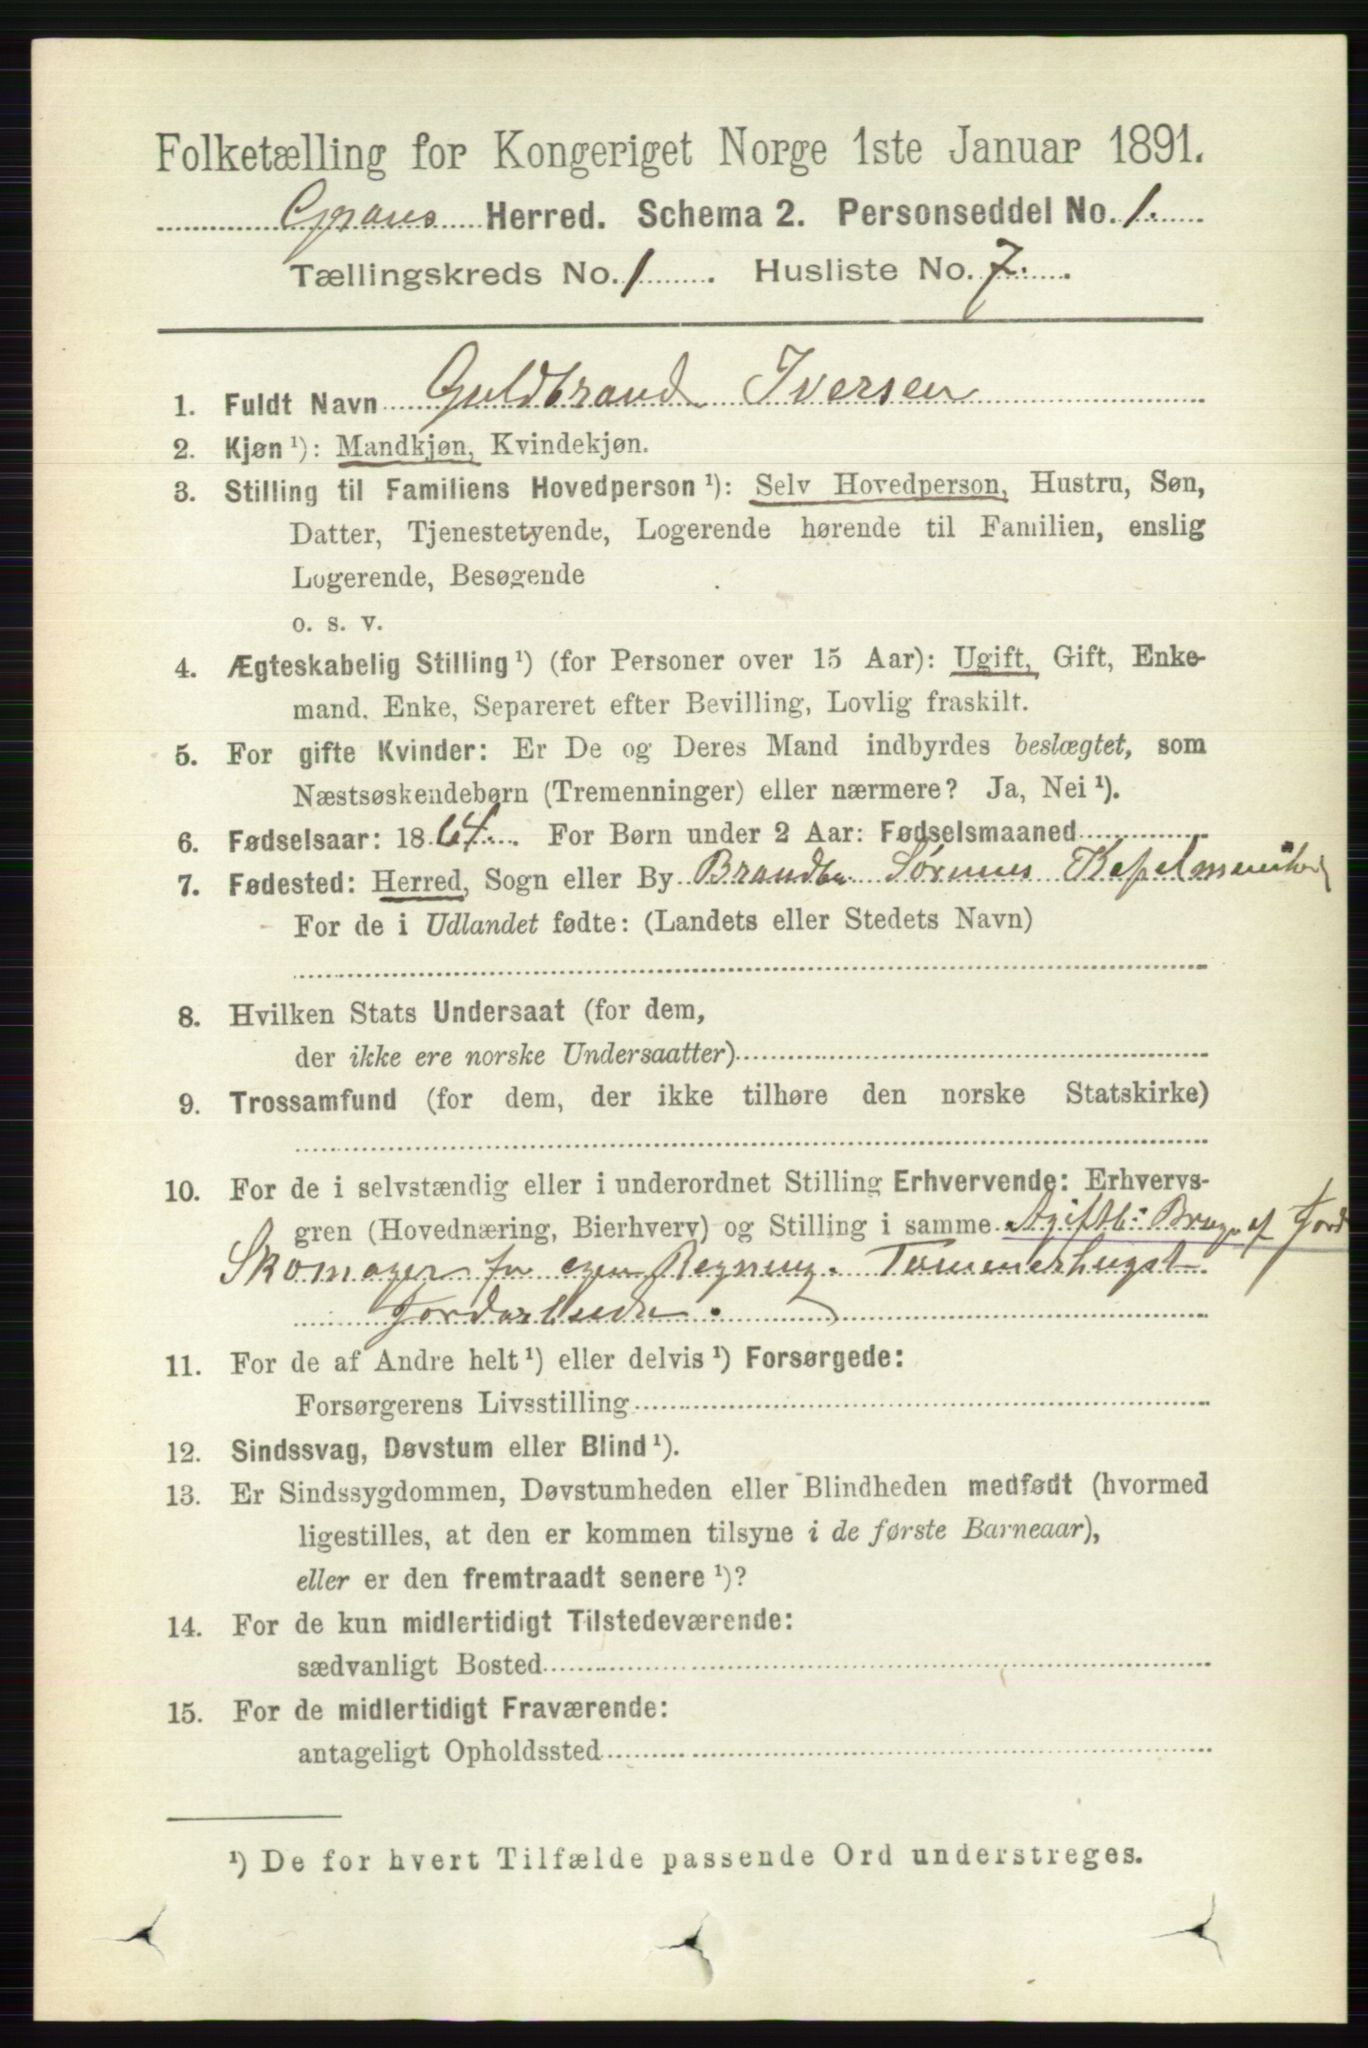 Folketælling for Kongeriget Norge 1ste Januar 1891.
Grans Herred. Schema 2. Personseddel No. 1.
Tællingskreds No. 1. Husliste No. 7.
1. Fuldt Navn Guldbrand Iversen
2. Kjøn ¹): Mandkjøn, Kvindekjøn.
3. Stilling til Familiens Hovedperson ¹): Selv Hovedperson, Hustru, Søn,
Datter, Tjenestetyende, Logerende hørende til Familien, enslig
Logerende, Besøgende
o. s. v.
4. Ægteskabelig Stilling ¹) (for Personer over 15 Aar): Ugift, Gift, Enke-
mand, Enke, Separeret efter Bevilling, Lovlig fraskilt.
5. For gifte Kvinder: Er De og Deres Mand indbyrdes beslægtet, som
Næstsøskendebørn (Tremenninger) eller nærmere? Ja, Nei ¹).
6. Fødselsaar: 1864. For Børn under 2 Aar: Fødselsmaaned
7. Fødested: Herred, Sogn eller By Brandbu Sørums
For de i Udlandet fødte: (Landets eller Stedets Navn)
8. Hvilken Stats Undersaat (for dem,
der ikke ere norske Undersaatter)
9. Trossamfund (for dem, der ikke tilhøre den norske Statskirke)
10. For de i selvstændig eller i underordnet Stilling Erhvervende: Erhvervs-
gren (Hovednæring, Bierhverv) og Stilling i samme Afgiftb: Brug af Jord
Skomager for egen Regning. Tømmerhugst
Jordarbeide.
11. For de af Andre helt ¹) eller delvis ¹) Forsørgede:
Forsørgerens Livsstilling
12. Sindssvag, Døvstum eller Blind ¹).
13. Er Sindssygdommen, Døvstumheden eller Blindheden medfødt (hvormed
ligestilles, at den er kommen tilsyne i de første Barneaar),
eller er den fremtraadt senere ¹)?
14. For de kun midlertidigt Tilstedeværende:
sædvanligt Bosted
15. For de midlertidigt Fraværende:
antageligt Opholdssted
¹) De for hvert Tilfælde passende Ord understreges.